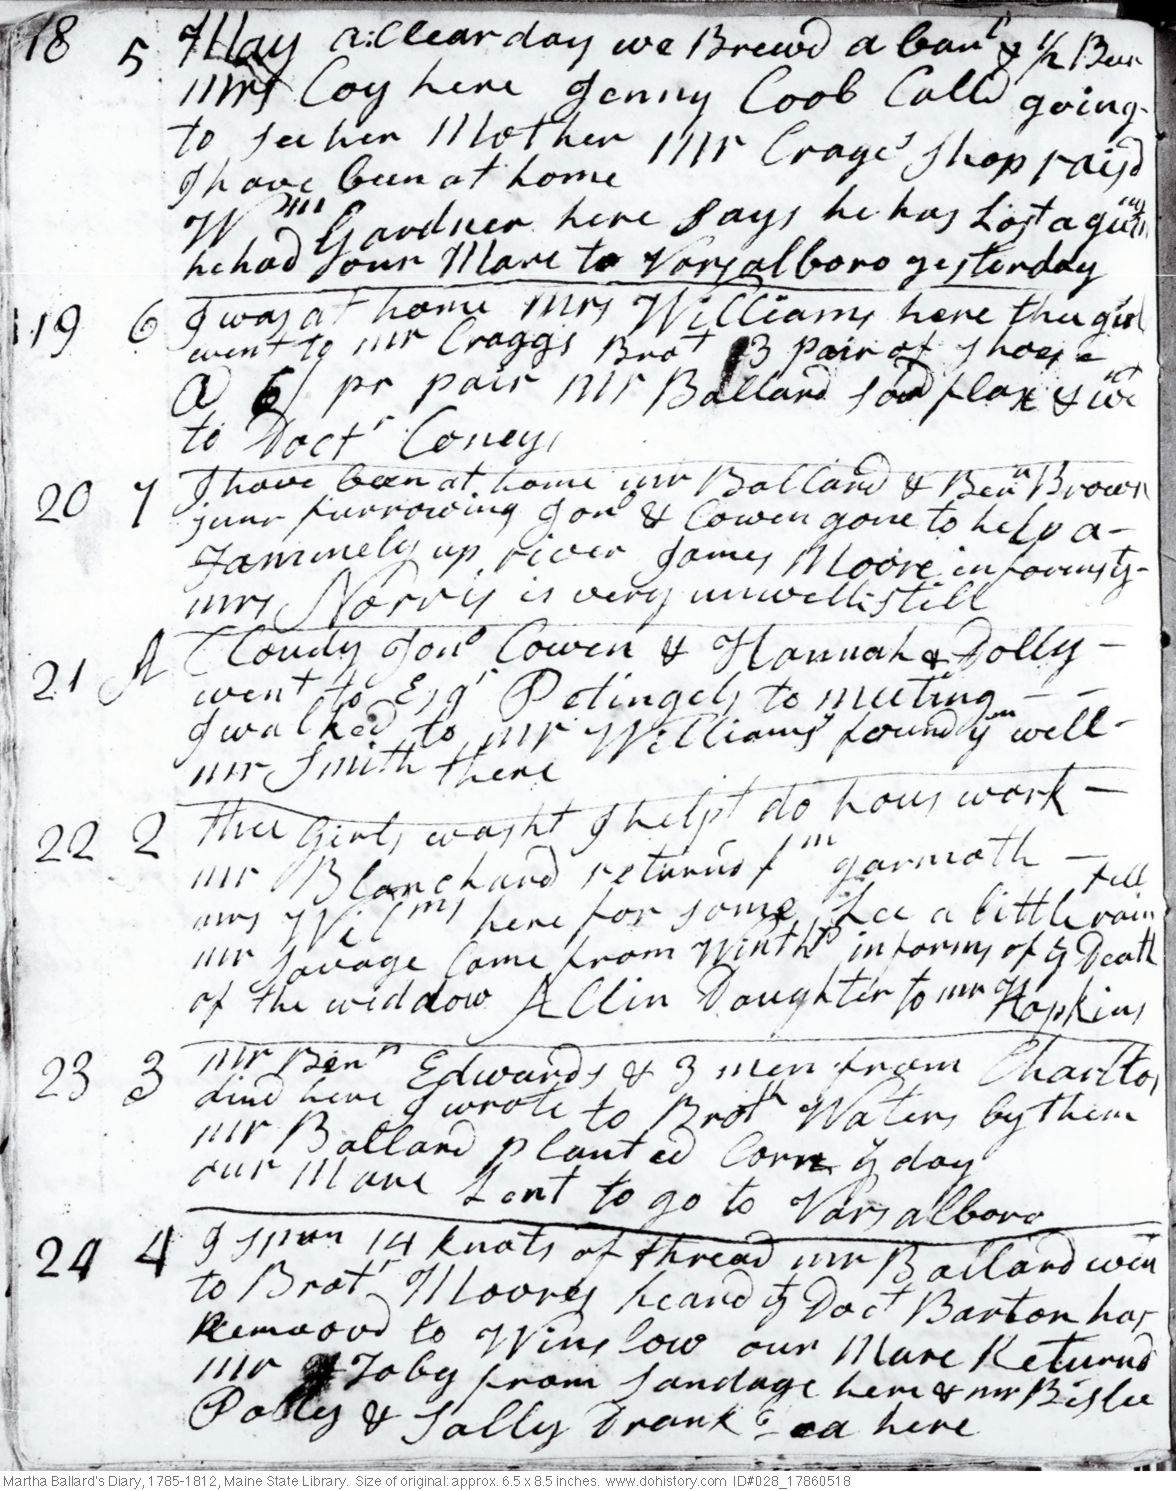 18 5 May a:Clear day we Brewd a barl & 1/2 Beer
Mrs Coy here Jenny Coob Calld going
to see her Mother Mr Crages Shop raisd
I have been at home
Wm Gardner here Says he has Lost a
he had our Mare to Varsalboro yesterday
19 6 I was at home Mrs Williams here thee girl
went to mr Craggs Brot 3 pair of Shoes
@ 6/ pr pair Mr Ballard sowd flax & went
to Doctr Coneys
20 7 I have been at home mr Ballard & Benn Brown
junr furrowing Jono & Cowen gone to help a
Jammely up river James Moore informs yt
mrs Norris is very unwell still
21 A Cloudy Jono Cowen & Hannah & Dolly
went to Esqr Petingels to meeting
I walked to mr Williams found ym well
mr Smith there
22 2 thee Girls washt I helpt do hous work
mr Blanchard returnd fm yarmoth
mrs Wilms here for some Lee a little rain fell
mr Savage Came from Winthp informs of ye Death
of the widdow Allin Daughter to mr Hopkins
23 3 mr Benn Edwards & 3 men from Charlton
dind here I wrote to Broth Waters by them
mr Ballard planted Corn ys day
our Mare Sent to go to Varsalboro
24 4 I spun 14 knots of thread mr Ballard went
to Brotr Moores heard yt Doct Barton has
Remoovd to Winslow our Mare Returnd
mr Toby from Sandage here & mr Bislee
Polly & Sally Drank Tea here
Martha Ballard's Diary, 1785-1812, Maine State Library. Size of original: approx. 6.5 x 8.5 inches. www.dohistory.com ID#028_17860518